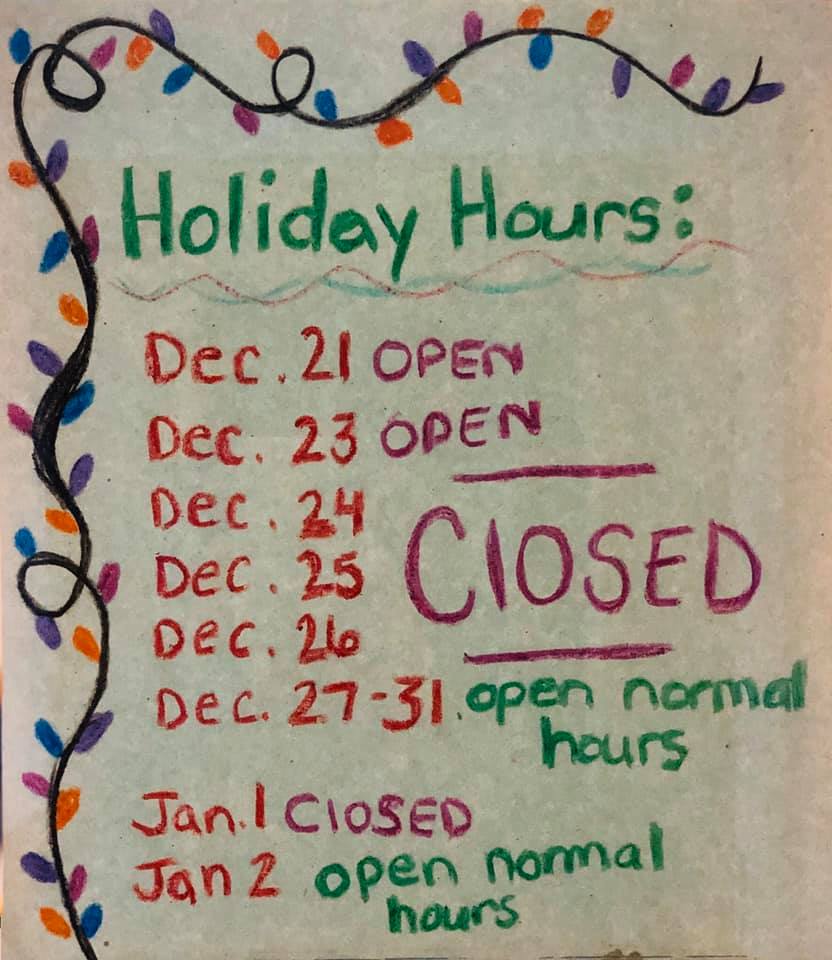 Holiday Hours:
Dec. 21 OPEN
Dec. 23 OPEN
Dec. 24
Dec. 25 ClOSED
Dec. 26
Dec. 27-31. open normal
hours
Jan. 1 ClOSED
Jan 2 open normal
hours